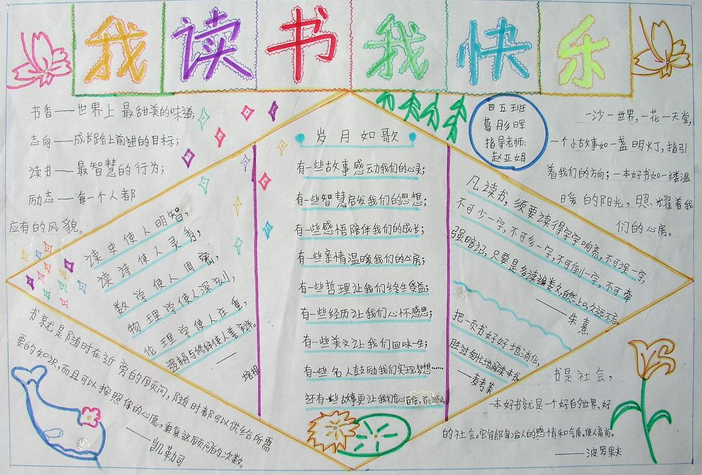 我读书我快乐
书香——世界上最甜美的味道;
志向——成长路上前进的目标;
读书——最智慧的行为;
励志——每一个人都
应有的风貌。
四五班
葛彤晖
指导老师:
赵亚娟
一沙一世界,一花一天堂,
一个小故事如一盏明灯,指引
着我们的方向;一本好书如一缕温
暖的阳光,照耀着我
们的心房。
岁月如歌
有一些故事感动我们的心灵;
有一些智慧启发我们的思想;
有一些感悟陪伴我们的成长;
有一些亲情温暖我们的心房;
有一些哲理让我们终生受益;
有一些经历让我们心怀感恩;
有一些美文让我们回味一生;
有一些名人鼓励我们实现梦想……
还有一些故事更让我们
读史使人明智,
读诗使人灵秀,
数学使人周密,
物理学使人深刻,
伦理学使人庄重,
逻辑与修辞使人善辩。
——培根
凡读书,须要读得字字响亮,不可误一字,
不可少一字,不可多一字,不可倒一字,不可牵
强暗记,只要是多诵遍数,自然上口,久远不忘。
——朱熹
把一页书好好地消化,
胜过匆忙地阅读一本书。
——麦考莱
书就是随时在近旁的顾问,随时都可以供给你所需
要的知识,而且可以按照你的心愿,重复这顾问的次数。
——凯勒司
书是社会,
一本好书就是一个好的世界,好
的社会。它能陶冶人的感情和气质,使人高尚。
——波罗果夫